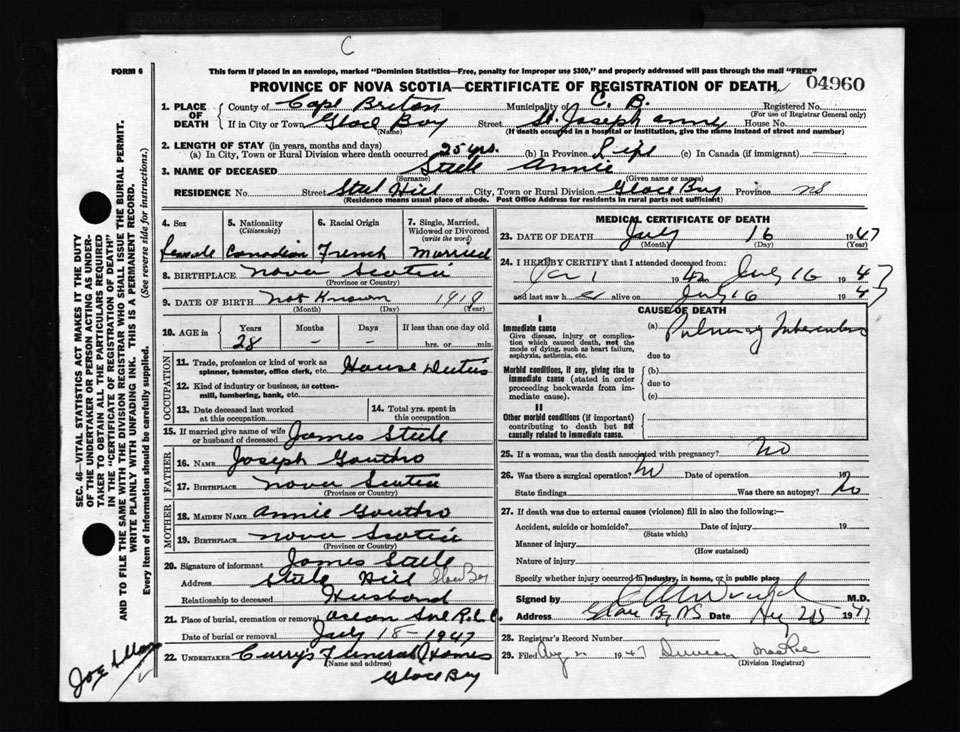 C
FORM 6
This form if placed in an envelope, marked "Dominion Statistics—Free, penalty for improper use $300," and properly addressed will pass through the mail "FREE"
PROVINCE OF NOVA SCOTIA—CERTIFICATE OF REGISTRATION OF DEATH 04960
1. PLACE OF DEATH County of Cape Breton Municipality of C. B. Registered No.
(For use of Registrar General only)
If in City or Town Glace Bay Street St. Joseph House No.
(Name) (If death occurred in a hospital or institution, give the name instead of street and number)
2. LENGTH OF STAY (in years, months and days)
(a) In City, Town or Rural Division where death occurred 25 yrs. (b) In Province Life (c) In Canada (if immigrant)
3. NAME OF DECEASED Steele Annie
(Surname) (Given name or names)
RESIDENCE No. Street Steel Hill City, Town or Rural Division Glace Bay Province NS
(Residence means usual place of abode. Post Office Address for residents in rural parts not sufficient)
4. Sex 5. Nationality (Citizenship) 6. Racial Origin 7. Single, Married, Widowed or Divorced (write the word)
Female Canadian French Married
8. BIRTHPLACE Nova Scotia
(Province or Country)
9. DATE OF BIRTH Not Known 1919
(Month) (Day) (Year)
10. AGE in Years Months Days If less than one day old
28 - - hrs. or min.
OCCUPATION
11. Trade, profession or kind of work as spinner, teamster, office clerk, etc. House Duties
12. Kind of industry or business, as cotton-mill, lumbering, bank, etc.
13. Date deceased last worked at this occupation 14. Total yrs. spent in this occupation
15. If married give name of wife or husband of deceased James Steele
FATHER
16. NAME Joseph Gouthro
17. BIRTHPLACE Nova Scotia
(Province or Country)
MOTHER
18. MAIDEN NAME Annie Gouthro
19. BIRTHPLACE Nova Scotia
(Province or Country)
20. Signature of informant James Steele
Address Steele Hill Glace Bay
Relationship to deceased Husband
21. Place of burial, cremation or removal Ocean Ave R.C.C.
Date of burial or removal July 18 - 1947
22. UNDERTAKER Curry's Funeral Homes
(Name and address)
Glace Bay
MEDICAL CERTIFICATE OF DEATH
23. DATE OF DEATH July 16 1947
(Month) (Day) (Year)
24. I HEREBY CERTIFY that I attended deceased from:
Jan 1 19 July 16 1947
and last saw her alive on July 16 1947
CAUSE OF DEATH
I
Immediate cause
Give disease, injury, or complication which caused death, not the mode of dying, such as heart failure, asphyxia, asthenia, etc.
(a) Pulmonary Tuberculosis
due to
Morbid conditions, if any, giving rise to immediate cause (stated in order proceeding backwards from immediate cause).
(b)
due to
(c)
II
Other morbid conditions (if important) contributing to death but not causally related to immediate cause.
25. If a woman, was the death associated with pregnancy? No
26. Was there a surgical operation? No Date of operation 19
State findings Was there an autopsy? No
27. If death was due to external causes (violence) fill in also the following:—
Accident, suicide or homicide? Date of injury 19
(State which)
Manner of injury
(How sustained)
Nature of injury
Specify whether injury occurred in industry, in home, or in public place
Signed by M.D.
Address Glace Bay NS Date 1947
28. Registrar's Record Number
29. Filed Aug 2 1947 Duncan MacRae
(Division Registrar)
SEC. 46—VITAL STATISTICS ACT MAKES IT THE DUTY OF THE UNDERTAKER OR PERSON ACTING AS UNDERTAKER TO OBTAIN ALL THE PARTICULARS REQUIRED IN THE "CERTIFICATE OF REGISTRATION OF DEATH" AND TO FILE THE SAME WITH THE DIVISION REGISTRAR WHO SHALL ISSUE THE BURIAL PERMIT.
WRITE PLAINLY WITH UNFADING INK. THIS IS A PERMANENT RECORD.
Every item of information should be carefully supplied. (See reverse side for instructions.)
Joe